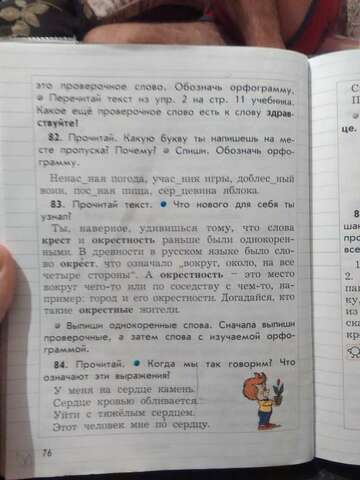 это проверочное слово. Обозначь орфограмму.
• Перечитай текст из упр. 2 на стр. 11 учебника.
Какое ещё проверочное слово есть к слову здрав-
ствуйте!
82. Прочитай. Какую букву ты напишешь на ме-
сте пропуска? Почему? • Спиши. Обозначь орфо-
грамму.
Ненас_ная погода, учас_ник игры, доблес_ный
воин, пос_ная пища, сер_цевина яблока.
83. Прочитай текст. • Что нового для себя ты
узнал?
Ты, наверное, удивишься тому, что слова
крест и окрестность раньше были однокорен-
ными. В древности в русском языке было сло-
во окрест, что означало „вокруг, около, на все
четыре стороны“. А окрестность – это место
вокруг чего-то или по соседству с чем-то, на-
пример: город и его окрестности. Догадайся, кто
такие окрестные жители.
• Выпиши однокоренные слова. Сначала выпиши
проверочные, а затем слова с изучаемой орфо-
граммой.
84. Прочитай. • Когда мы так говорим? Что
означают эти выражения?
У меня на сердце камень.
Сердце кровью обливается.
Уйти с тяжёлым сердцем.
Этот человек мне по сердцу.
76